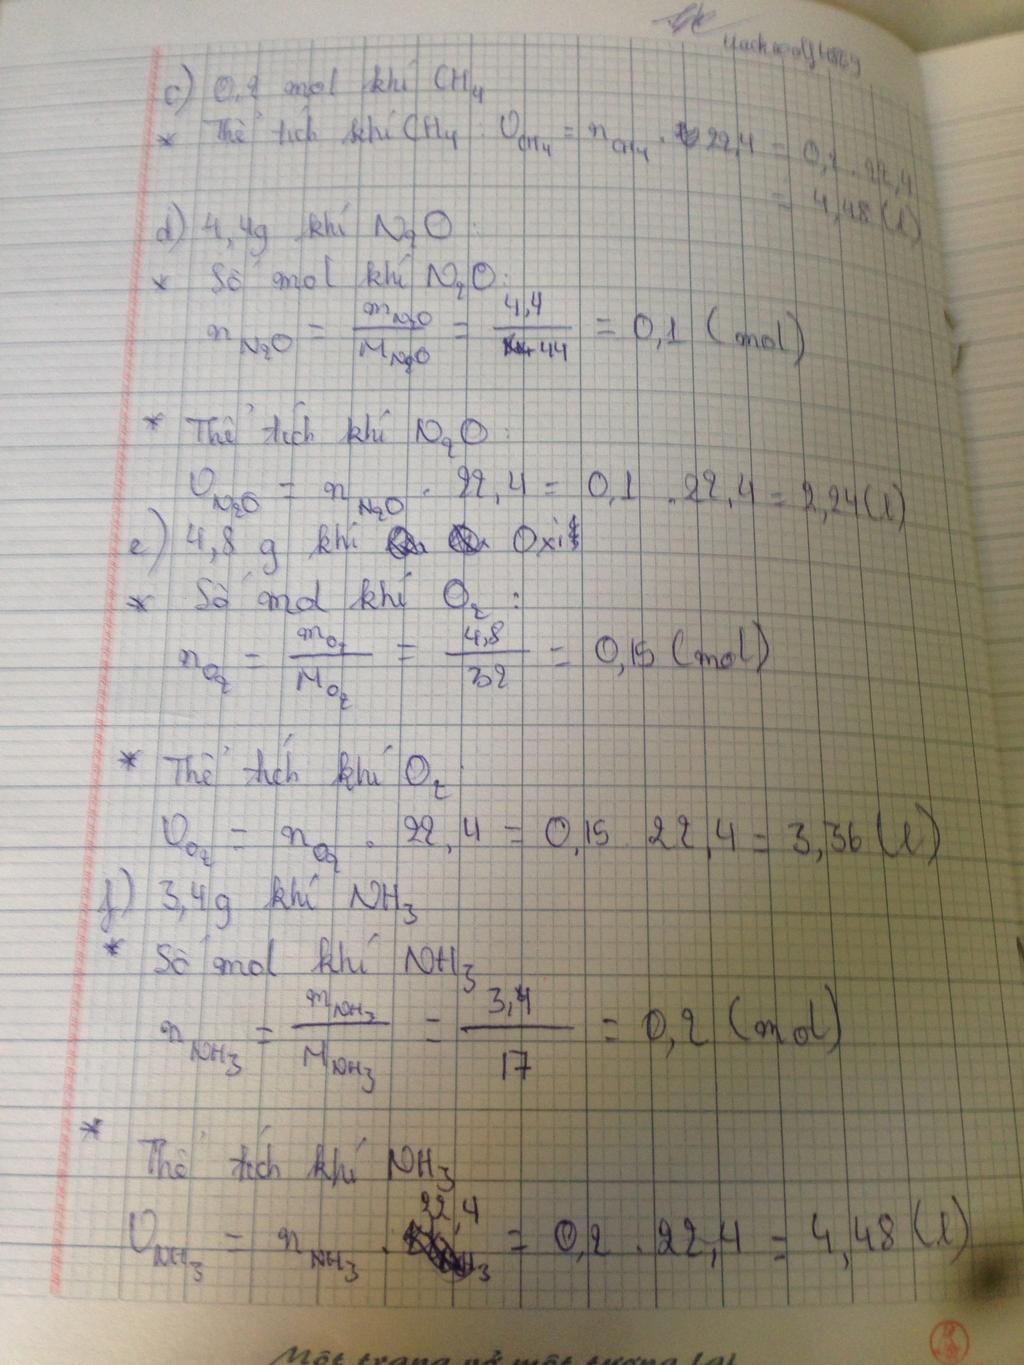 c) 0,2 mol khí CH₄
* Thể tích khí CH₄ : V_CH₄ = n_CH₄ . 22,4 = 0,2 . 22,4
= 4,48 (l)
d) 4,4g khí N₂O :
* Số mol khí N₂O :
n_N₂O = m_N₂O / M_N₂O = 4,4 / 44 = 0,1 (mol)
* Thể tích khí N₂O :
V_N₂O = n_N₂O . 22,4 = 0,1 . 22,4 = 2,24 (l)
e) 4,8 g khí Oxi
* Số mol khí O₂ :
n_O₂ = m_O₂ / M_O₂ = 4,8 / 32 = 0,15 (mol)
* Thể tích khí O₂ :
V_O₂ = n_O₂ . 22,4 = 0,15 . 22,4 = 3,36 (l)
f) 3,4g khí NH₃
* Số mol khí NH₃
n_NH₃ = m_NH₃ / M_NH₃ = 3,4 / 17 = 0,2 (mol)
* Thể tích khí NH₃
V_NH₃ = n_NH₃ . 22,4 = 0,2 . 22,4 = 4,48 (l)
Một trang vở một tương lai